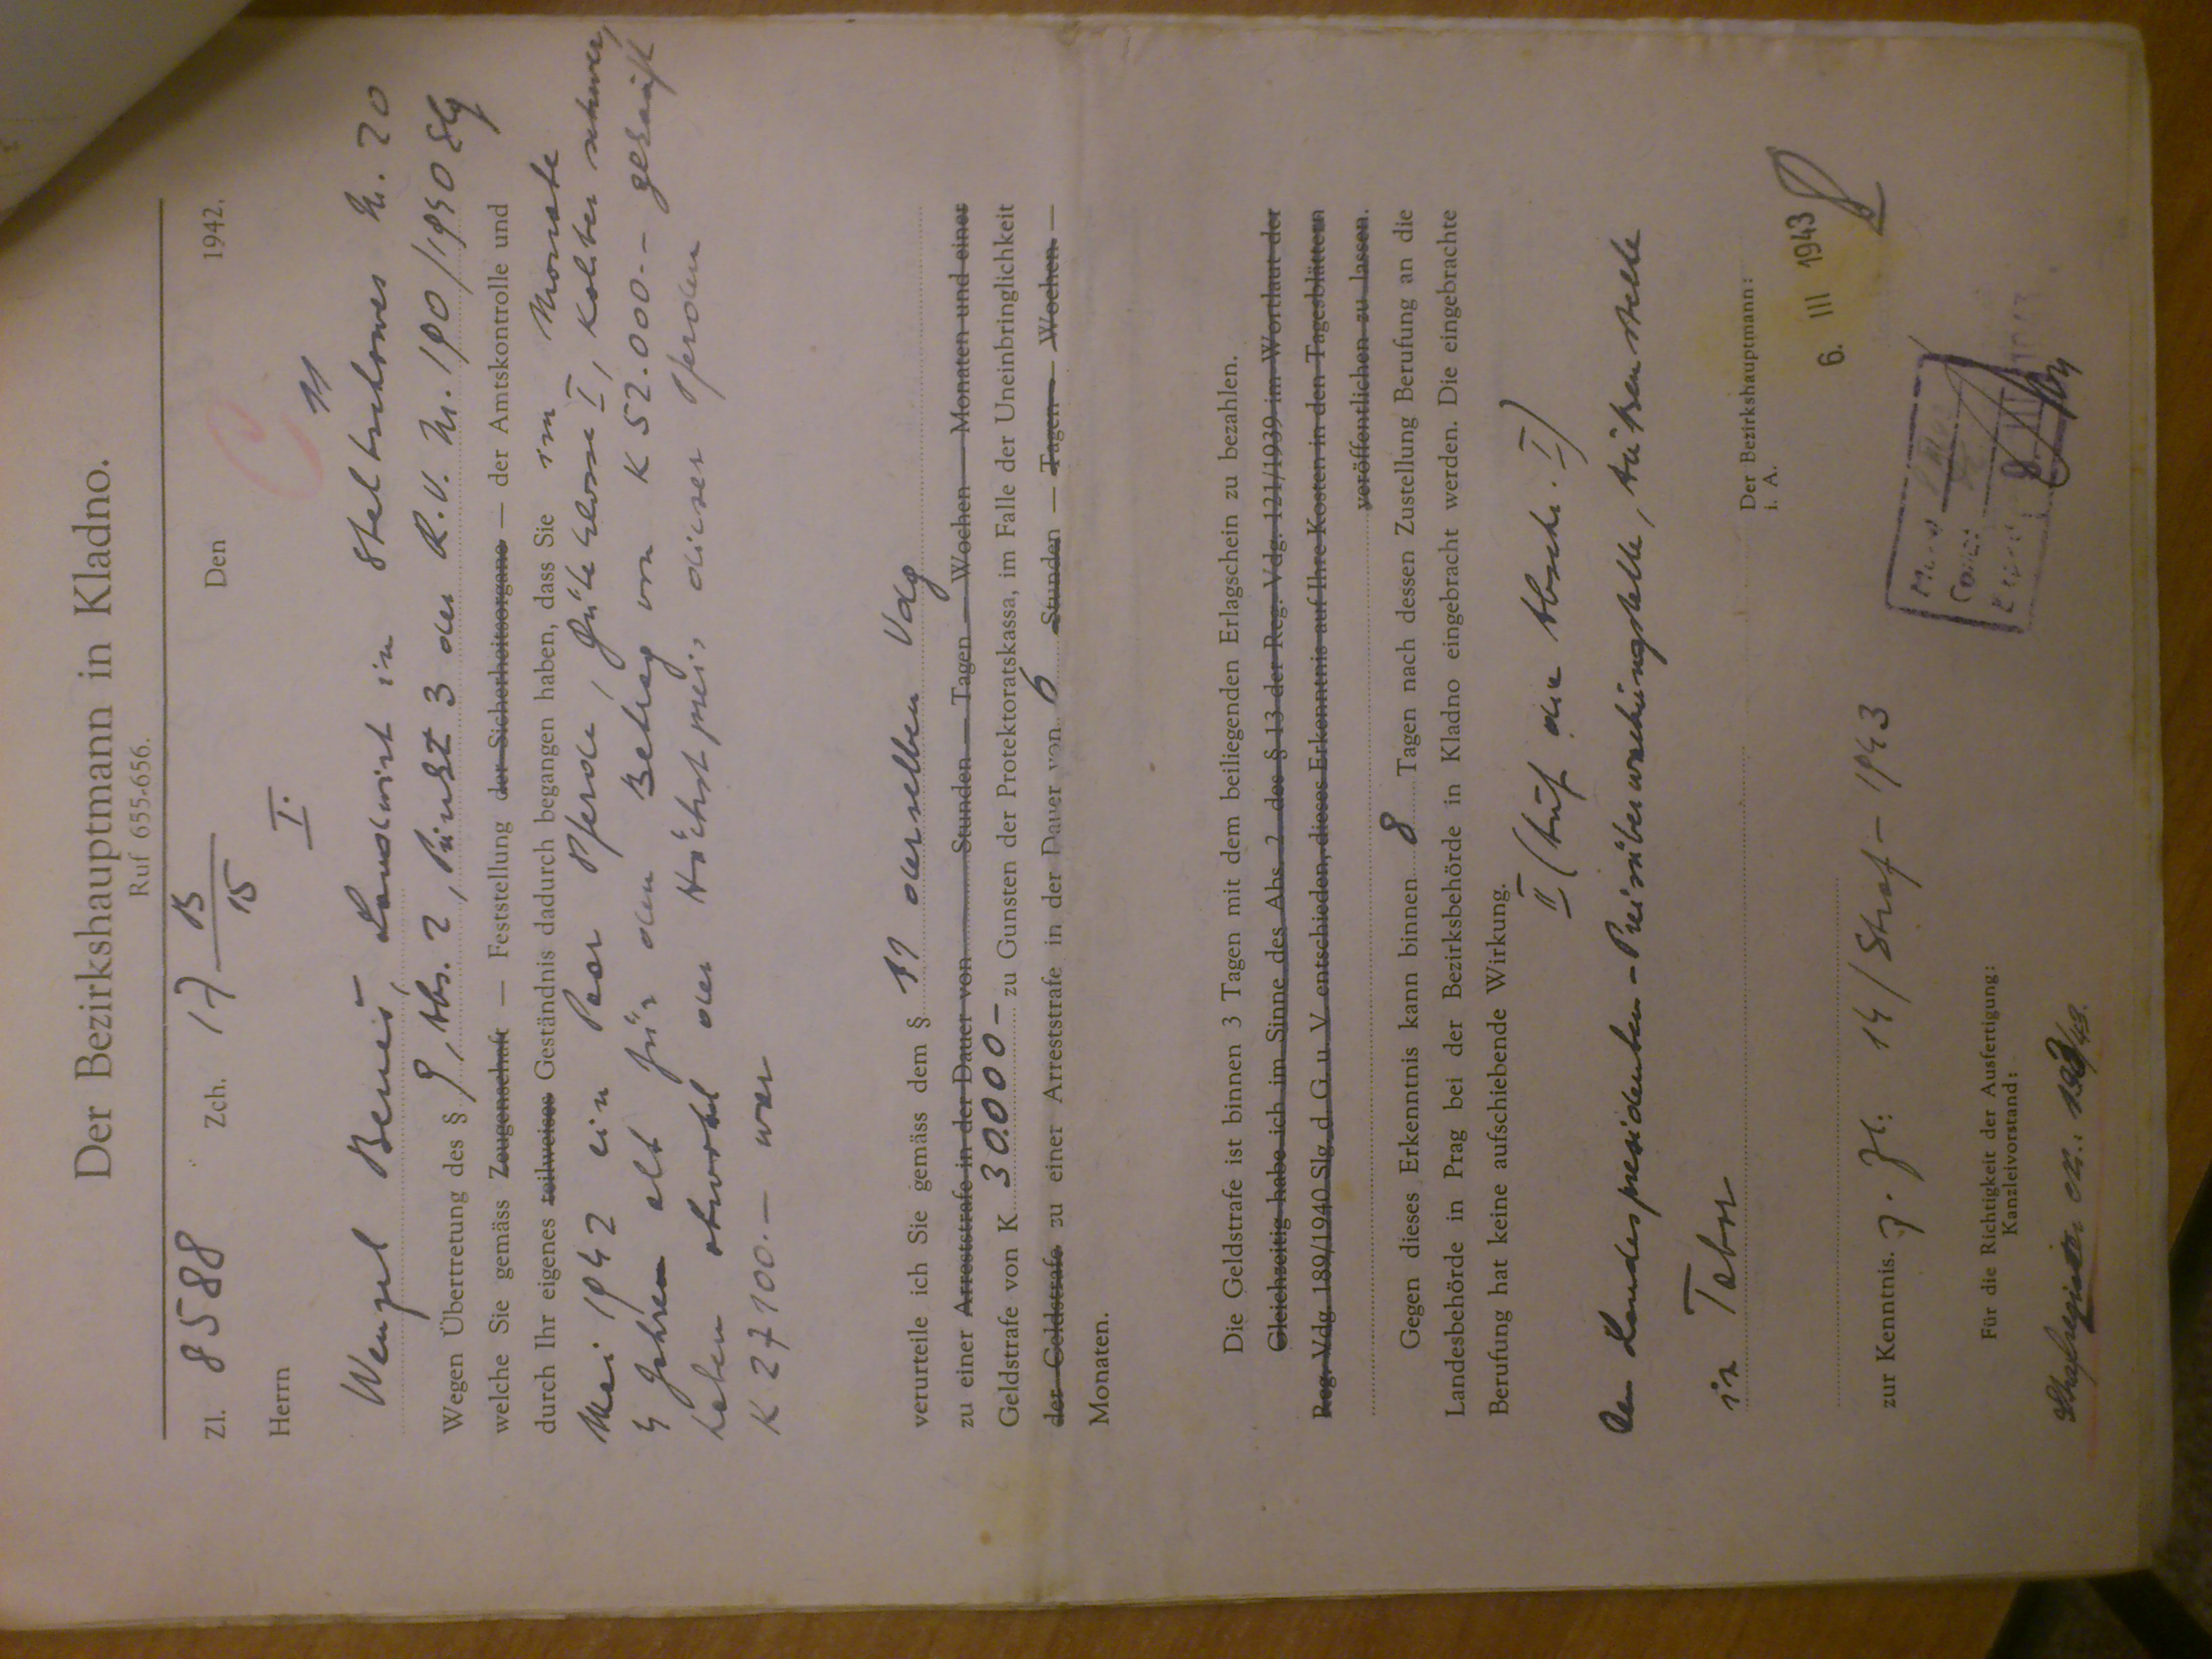 Der Bezirkshauptmann in Kladno.
Ruf 655-656.
Zl. 8588 Zch. 17 B/15 Den 1942.
Herrn
I.
11
Wenzel Beneš, Landwirt in Steltschowes Nr. 20
Wegen Übertretung des § 9, Abs. 2, Punkt 3 der R.V. Nr. 190/1940 Slg
welche Sie gemäss Zeugenschaft — Feststellung der Sicherheitsorgane — der Amtskontrolle und
durch Ihr eigenes teilweises Geständnis dadurch begangen haben, dass Sie im Monate
Mai 1942 ein Paar Pferde, Güteklasse I, Kaliber schwer,
4 Jahren alt für den Betrag von K 52.000.- gekauft
haben obwohl der Höchstpreis dieser Pferden
K 27100.— war
verurteile ich Sie gemäss dem § 11 derselben Vdg
zu einer Arreststrafe in der Dauer von Stunden — Tagen — Wochen — Monaten und einer
Geldstrafe von K 30.000— zu Gunsten der Protektoratskassa, im Falle der Uneinbringlichkeit
der Geldstrafe zu einer Arreststrafe in der Dauer von 6 Stunden — Tagen — Wochen —
Monaten.
Die Geldstrafe ist binnen 3 Tagen mit dem beiliegenden Erlagschein zu bezahlen.
Gleichzeitig habe ich im Sinne des Abs. 2 des § 13 der Reg. Vdg. 121/1939 im Wortlaut der
Reg. Vdg. 189/1940 Slg. d. G. u. V. entschieden, dieses Erkenntnis auf Ihre Kosten in den Tagesblättern
veröffentlichen zu lassen.
Gegen dieses Erkenntnis kann binnen 8 Tagen nach dessen Zustellung Berufung an die
Landesbehörde in Prag bei der Bezirksbehörde in Kladno eingebracht werden. Die eingebrachte
Berufung hat keine aufschiebende Wirkung.
II (Auf die Abschr. I)
Dem Landespresidenten - Preisüberwachungstelle, Außenstelle
in Tabor
Der Bezirkshauptmann:
i. A.
6. III 1943
zur Kenntnis. z. Zl: 14/Straf - 1943
Für die Richtigkeit der Ausfertigung:
Kanzleivorstand:
Strafregister Nr.: